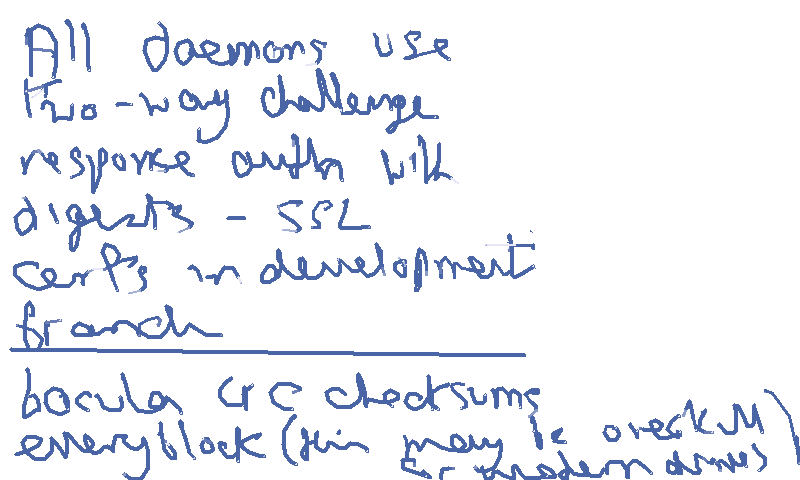 All daemons use
Two-way challenge
response authn with
digests - SSL
certs in development
branch
bacula CRC checksums
every block (this may be overkill)
for modern drives